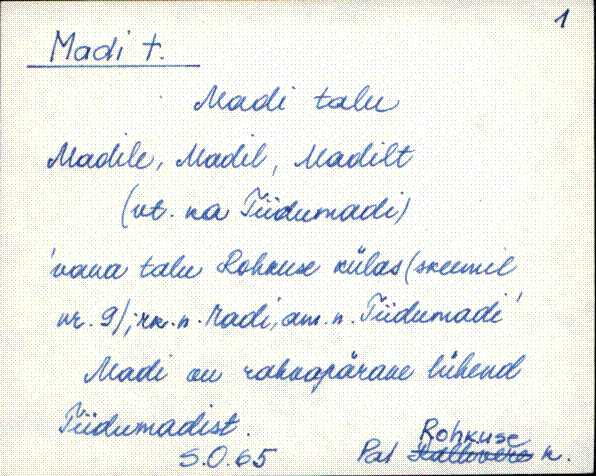 1
Madi t.
Madi talu
Madile, Madil, Madilt
(vt. ka Tiidumadi)
'vana talu Rohkuse külas (skeemil
nr. 9); rk. n. Madi, am. n. Tiidumadi'
Madi on rahvapärane lühend
Tiidumadist.
S.O. 65 Pal Rohkuse k.